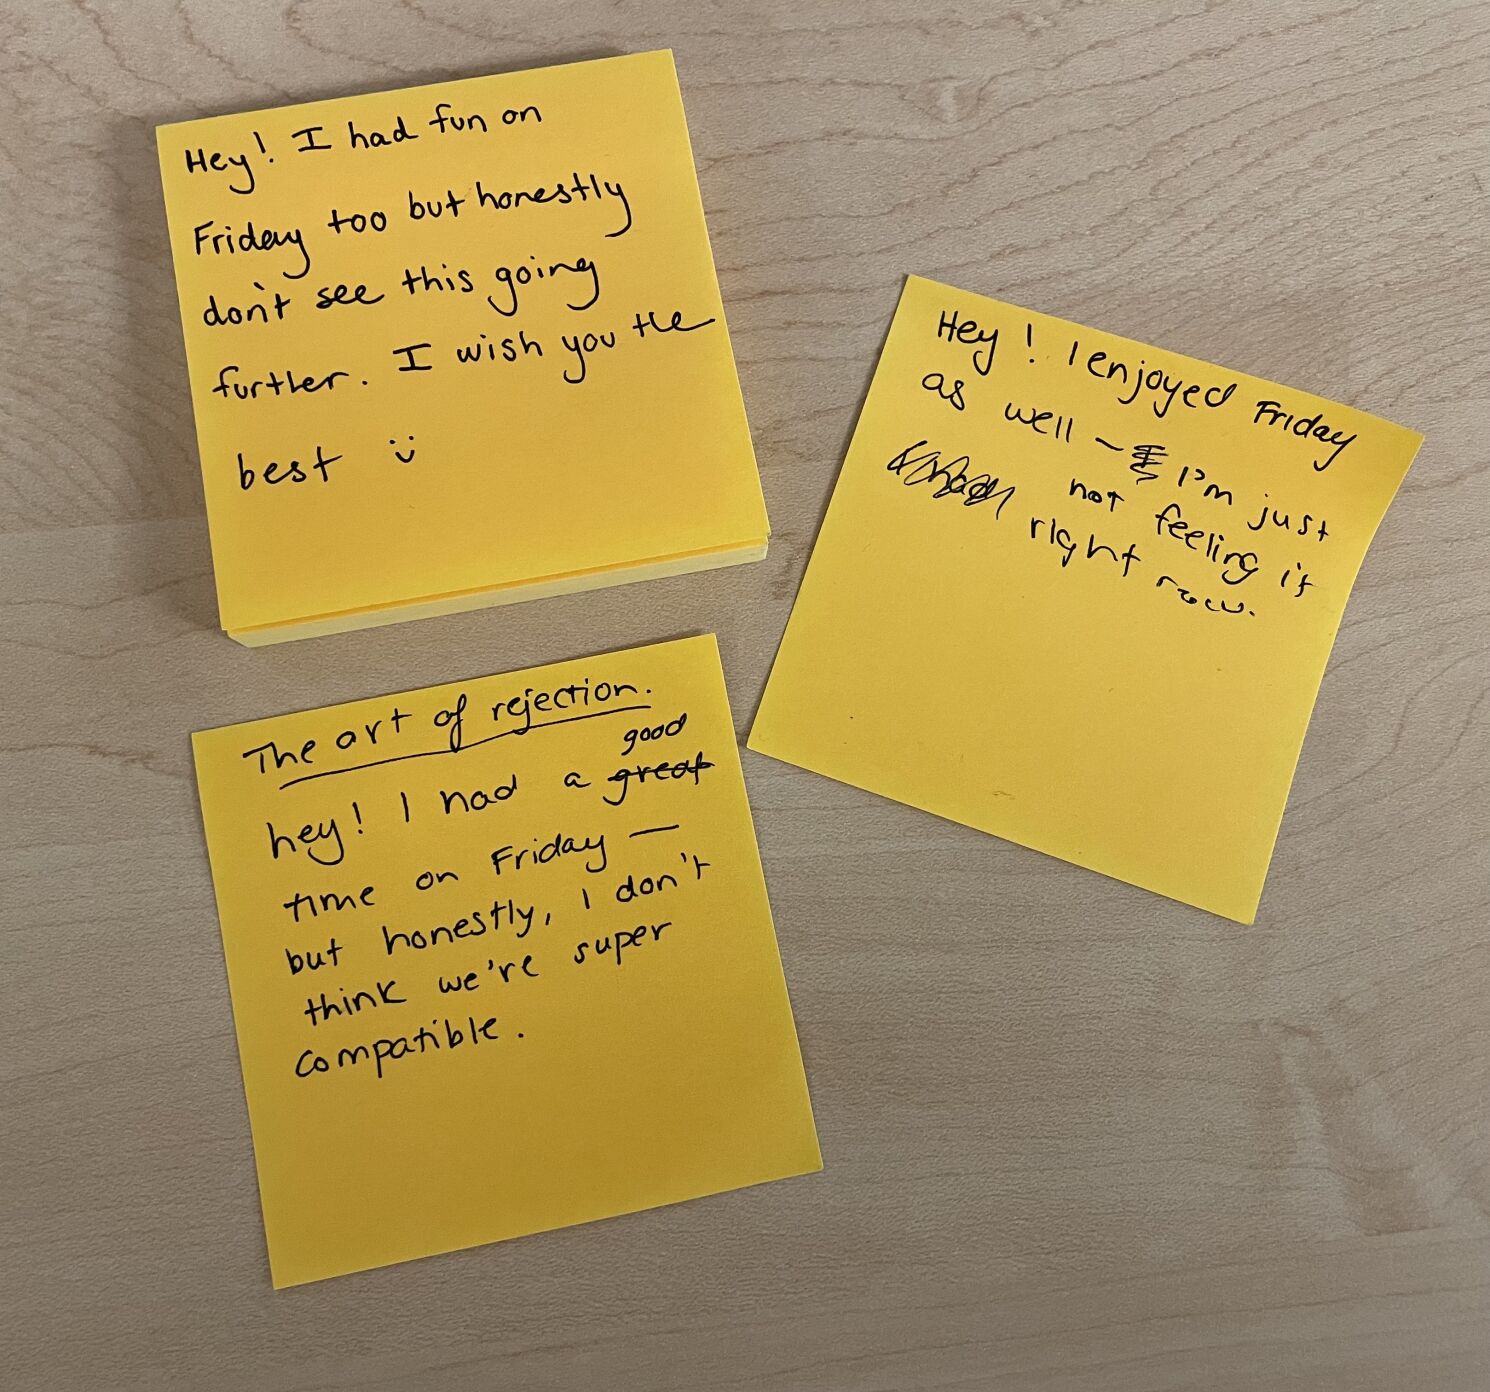 Hey! I had fun on
Friday too but honestly
don't see this going
further. I wish you the
best :)
Hey! I enjoyed Friday
as well ~ I'm just
not feeling it
right now.
The art of rejection.
good
hey! I had a great
time on Friday —
but honestly, I don't
think we're super
compatible.